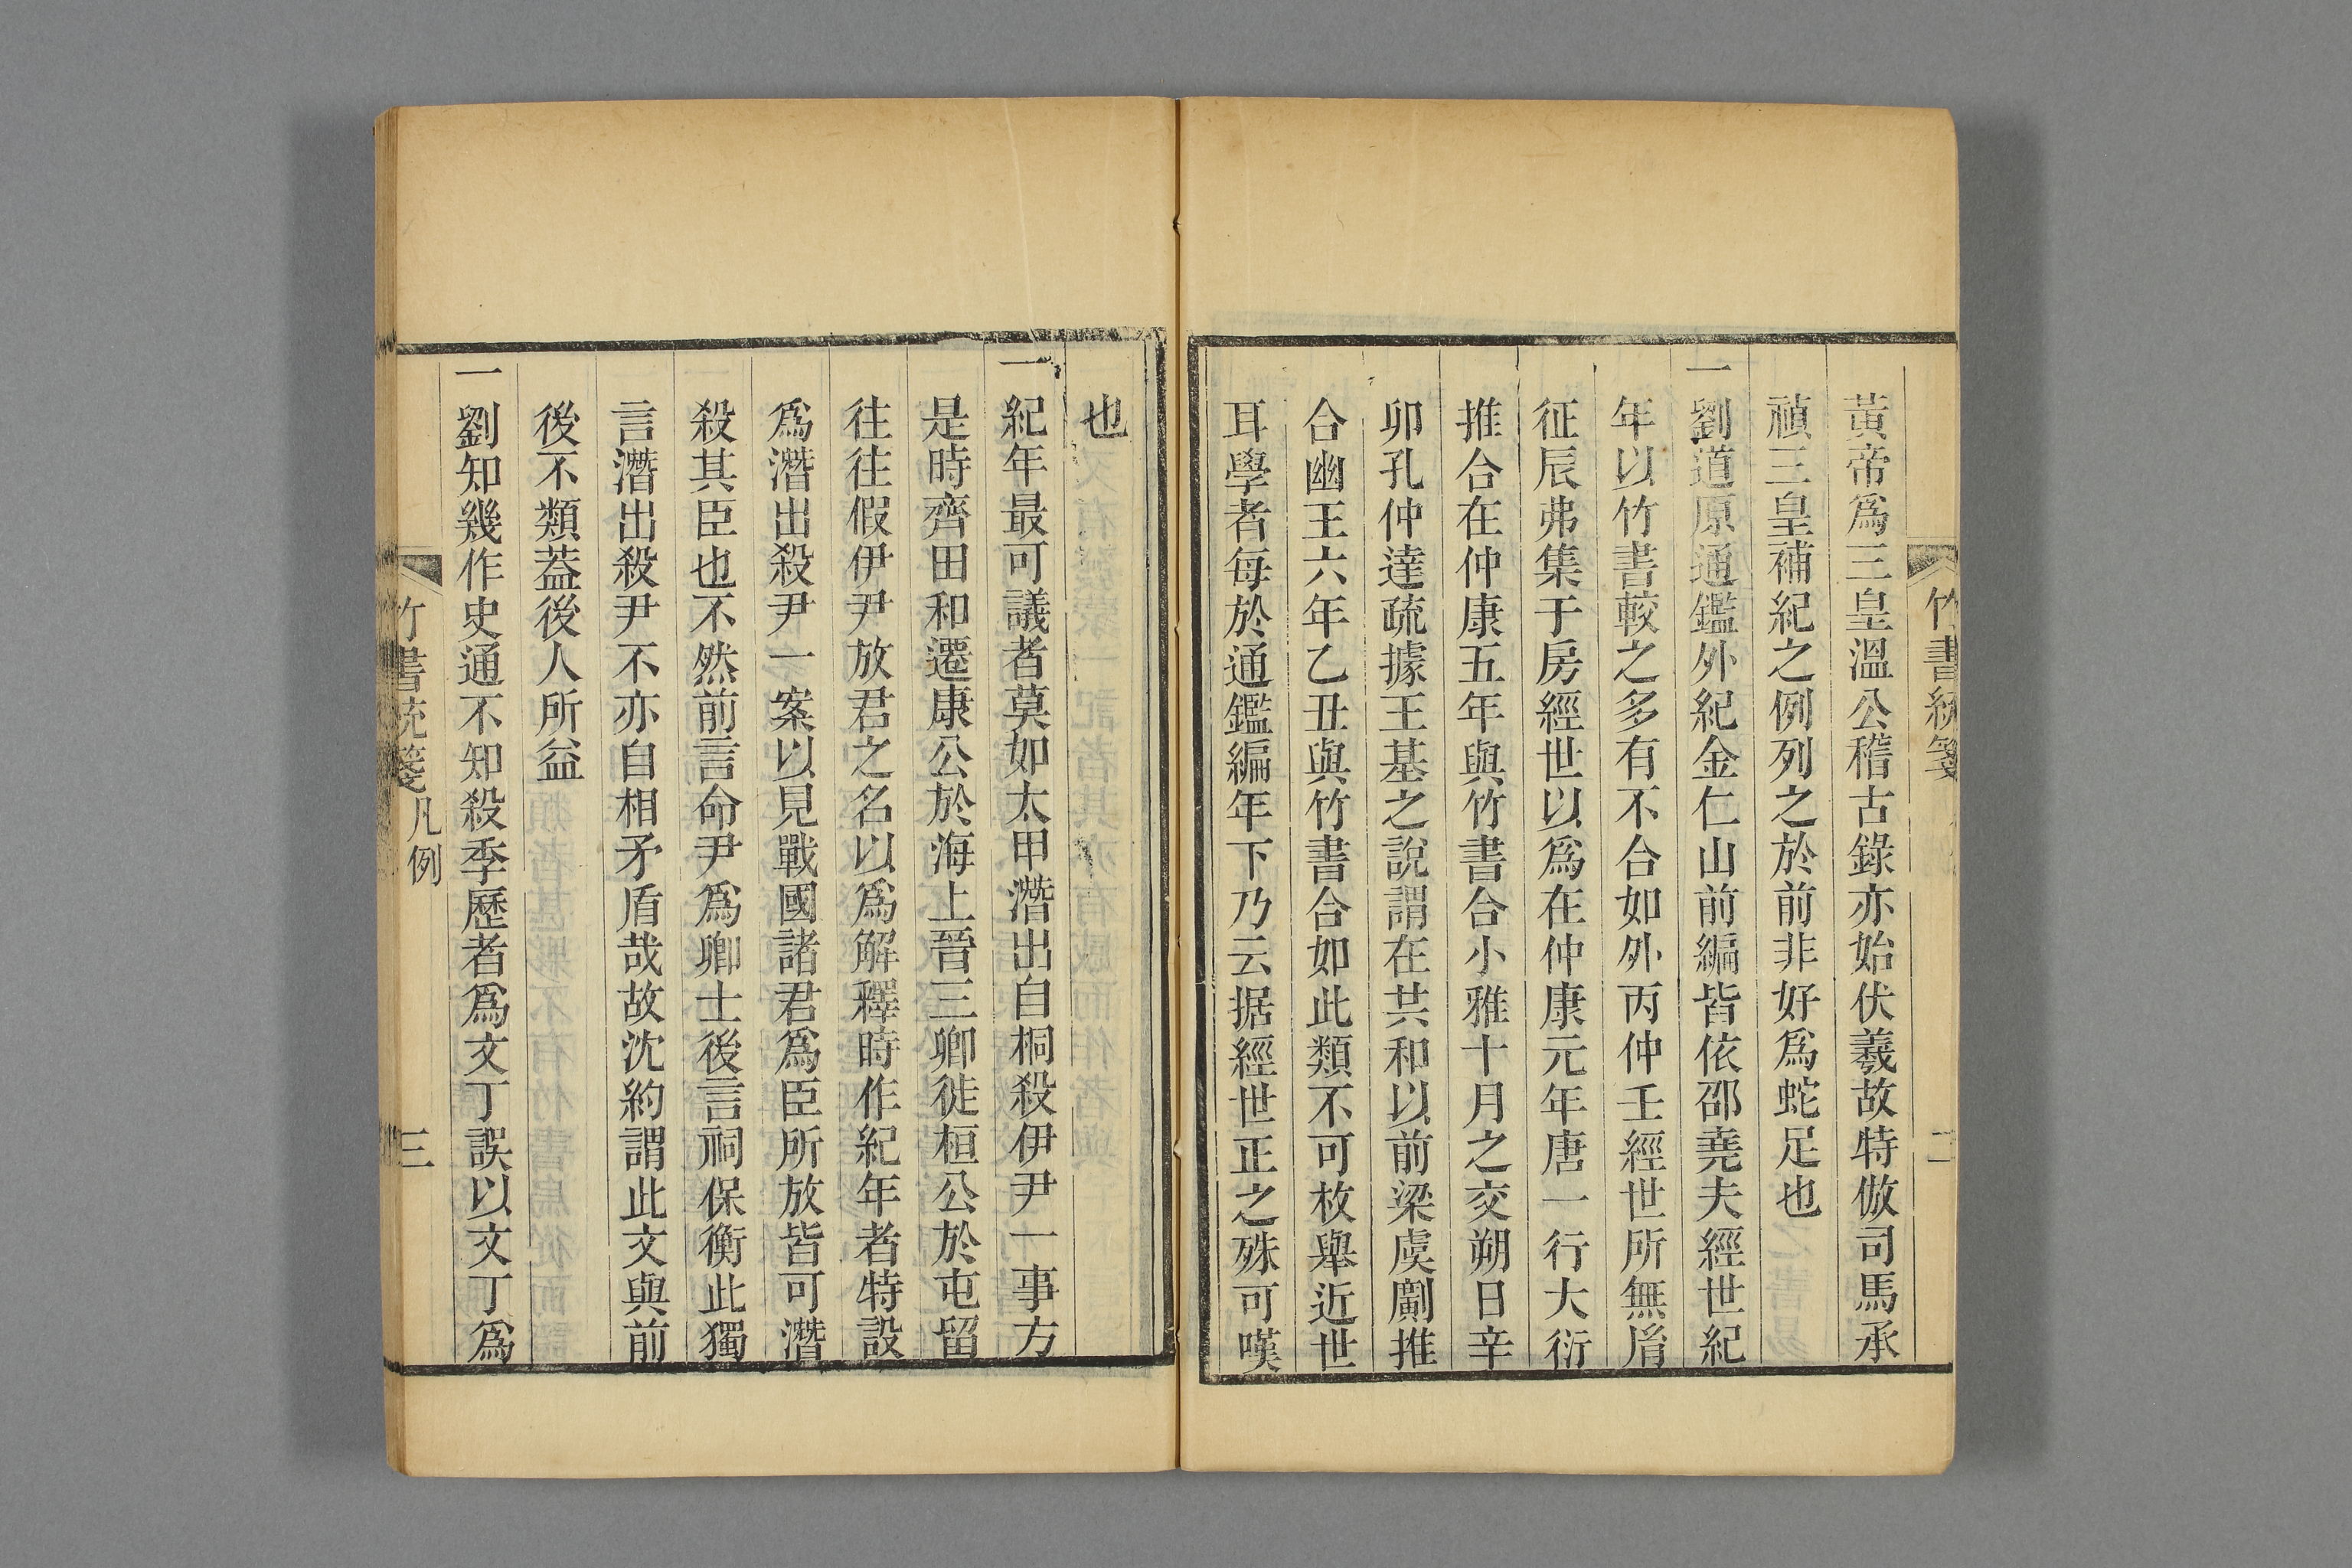 竹書統箋
二
黃帝爲三皇溫公稽古錄亦始伏羲故特倣司馬承
禎三皇補紀之例列之於前非好爲蛇足也
一劉道原通鑑外紀金仁山前編皆依邵堯夫經世紀
年以竹書較之多有不合如外丙仲壬經世所無㣧
征辰弗集于房經世以爲在仲康元年唐一行大衍
推合在仲康五年與竹書合小雅十月之交朔日辛
卯孔仲達疏據王基之說謂在共和以前梁虞𠠎推
合幽王六年乙丑與竹書合如此類不可枚舉近世
耳學者每於通鑑編年下乃云据經世正之殊可嘆
也
一紀年最可議者莫如太甲潛出自桐殺伊尹一事方
是時齊田和遷康公於海上晉三卿徙桓公於屯留
往往假伊尹放君之名以爲解釋時作紀年者特設
爲潛出殺尹一案以見戰國諸君爲臣所放皆可潛
殺其臣也不然前言命尹爲卿士後言祠保衡此獨
言潛出殺尹不亦自相矛盾哉故沈約謂此文與前
後不類蓋後人所益
一劉知幾作史通不知殺季歷者爲文丁誤以文丁爲
竹書統箋 凡例
三